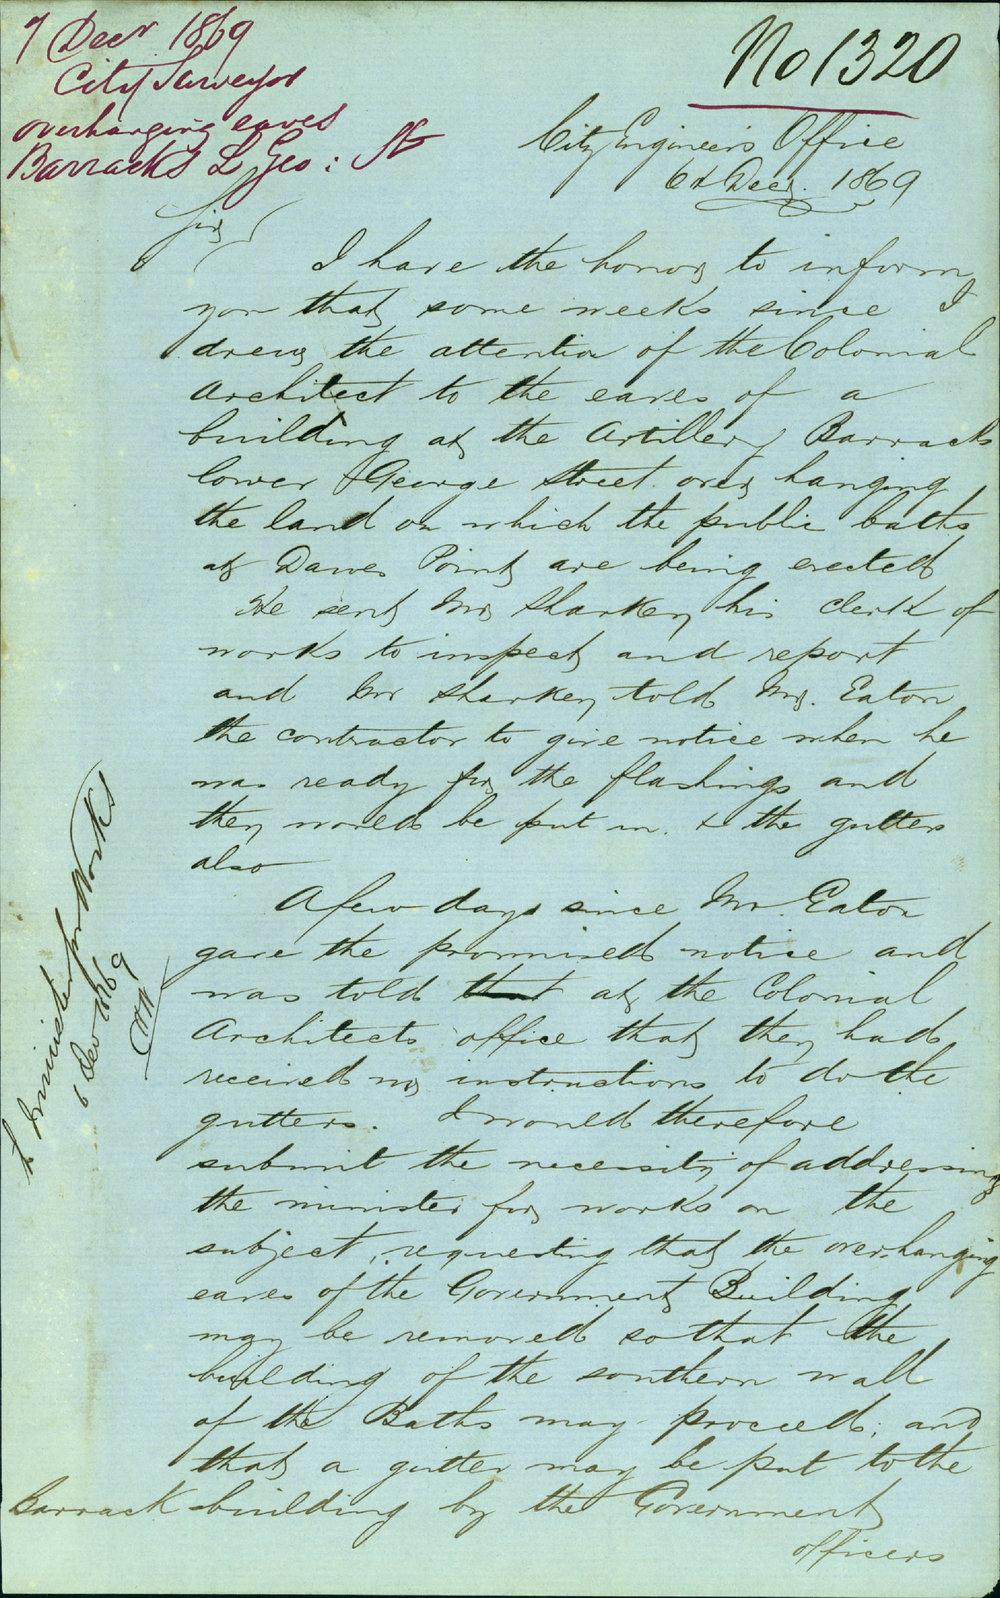 7 Decr 1869
City Surveyor
overhanging eaves
Barracks L Geo: St
No 1320
City Engineer's Office
6th Decr. 1869
Sir,
I have the honor to inform
you that some weeks since I
drew the attention of the Colonial
Architect to the eaves of a
building at the Artillery Barracks
lower George Street over hanging
the land on which the public baths
at Dawes Point are being erected
He sent Mr Sharkey his clerk of
works to inspect and report
and Mr Sharkey told Mr. Eaton
the contractor to give notice when he
was ready for the flashings and
they would be put in. & the gutters
also
A few days since Mr Eaton
gave the promised notice and
was told that at the Colonial
Architects office that they had
received no instructions to do the
gutters. I would therefore
submit the necessity of addressing
the minister for works on the
subject, requesting that the overhanging
eaves of the Government Building
may be removed so that the
building of the southern wall
of the Baths may proceed; and
that a gutter may be put to the
Barrack building by the Government
officers
Minister for Works
6 Dec 1869